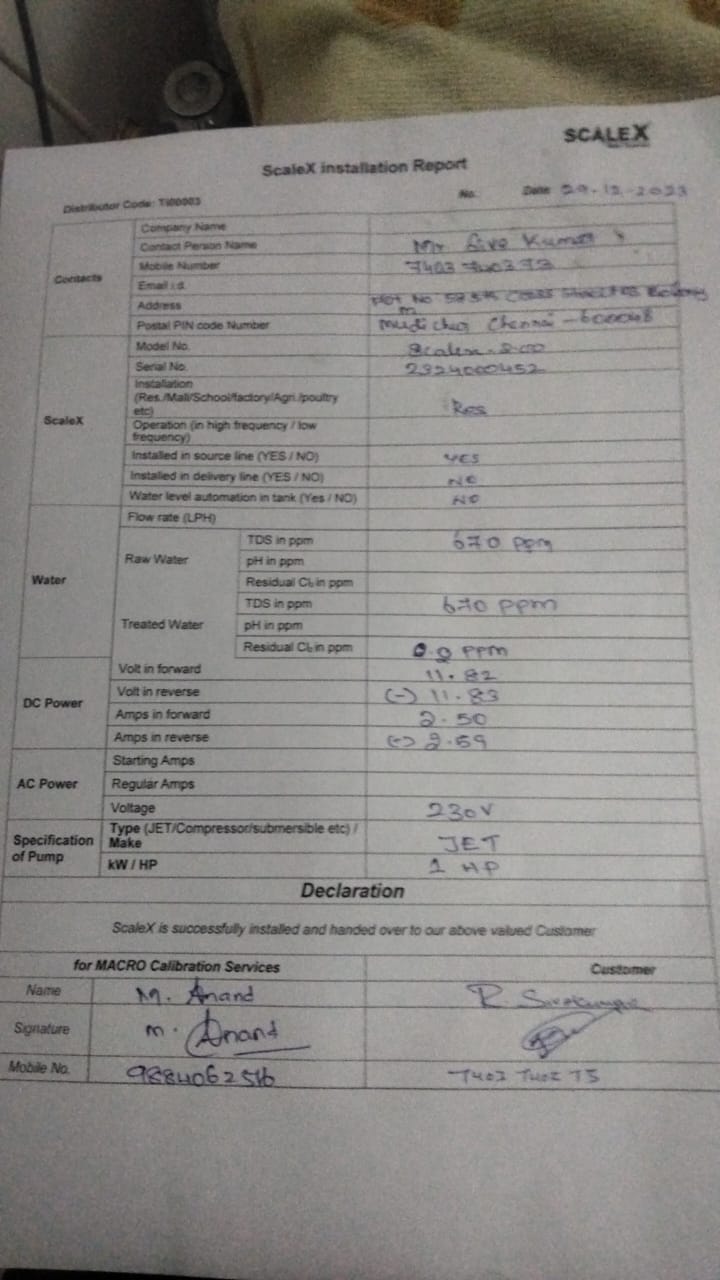 SCALEX
ScaleX installation Report
Distributor Code: TI00003 No. Date 29-12-2023
Contacts
Company Name
Contact Person Name Mr Siva Kumar
Mobile Number
Email i.d.
Address Plot No 5th Cross Street
Postal PIN code Number Chennai - 600048
ScaleX
Model No. Scalex
Serial No. 2324000452
Installation (Res./Mall/School/factory/Agri./poultry etc) Res
Operation (in high frequency / low frequency)
Installed in source line (YES / NO) YES
Installed in delivery line (YES / NO) NO
Water level automation in tank (Yes / NO) NO
Water
Flow rate (LPH)
Raw Water
TDS in ppm 670 ppm
pH in ppm
Residual Cl₂ in ppm
Treated Water
TDS in ppm 670 ppm
pH in ppm
Residual Cl₂ in ppm 0.0 PPM
DC Power
Volt in forward 11.82
Volt in reverse (-) 11.83
Amps in forward 2.50
Amps in reverse (-) 2.59
AC Power
Starting Amps
Regular Amps
Voltage 230V
Specification of Pump
Type (JET/Compressor/submersible etc) / Make JET
kW / HP 1 HP
Declaration
ScaleX is successfully installed and handed over to our above valued Customer
for MACRO Calibration Services Customer
Name M. Anand R. Sivakumar
Signature M. Anand
Mobile No. 9884062516